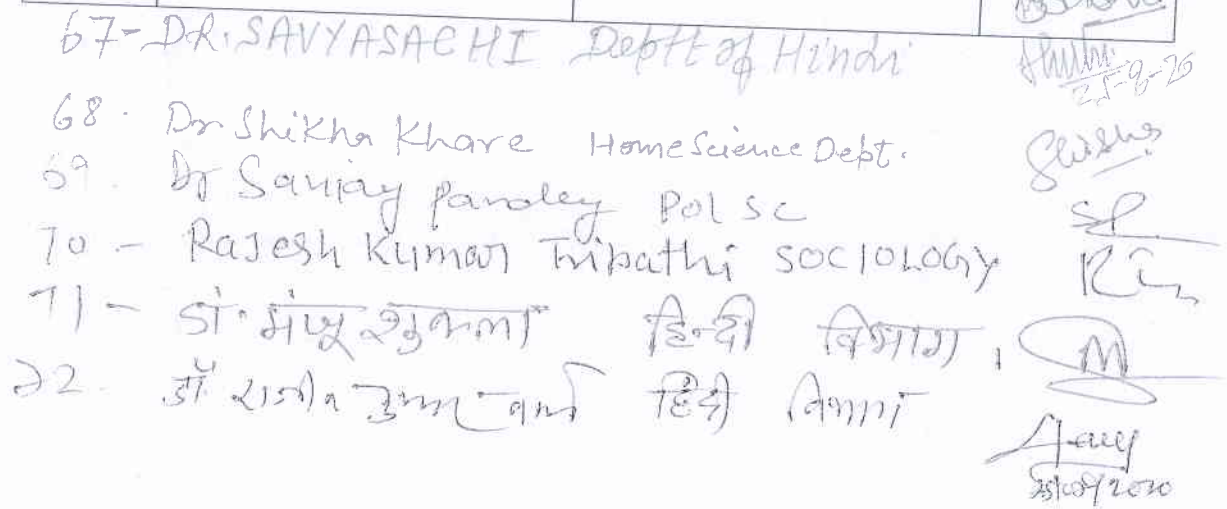 67- DR. SAVYASACHI Deptt of Hindi 25-9-20
68. Dr Shikha Khare Home Science Dept.
69. Dr Sanjay Pandey Pol Sc SP
70 - Rajesh Kumar Tripathi SOCIOLOGY
71 - डॉ. मंजू शुक्ला हिन्दी विभाग,
72. डॉ राजीव कुमार वर्मा हिंदी विभाग
25/09/2020